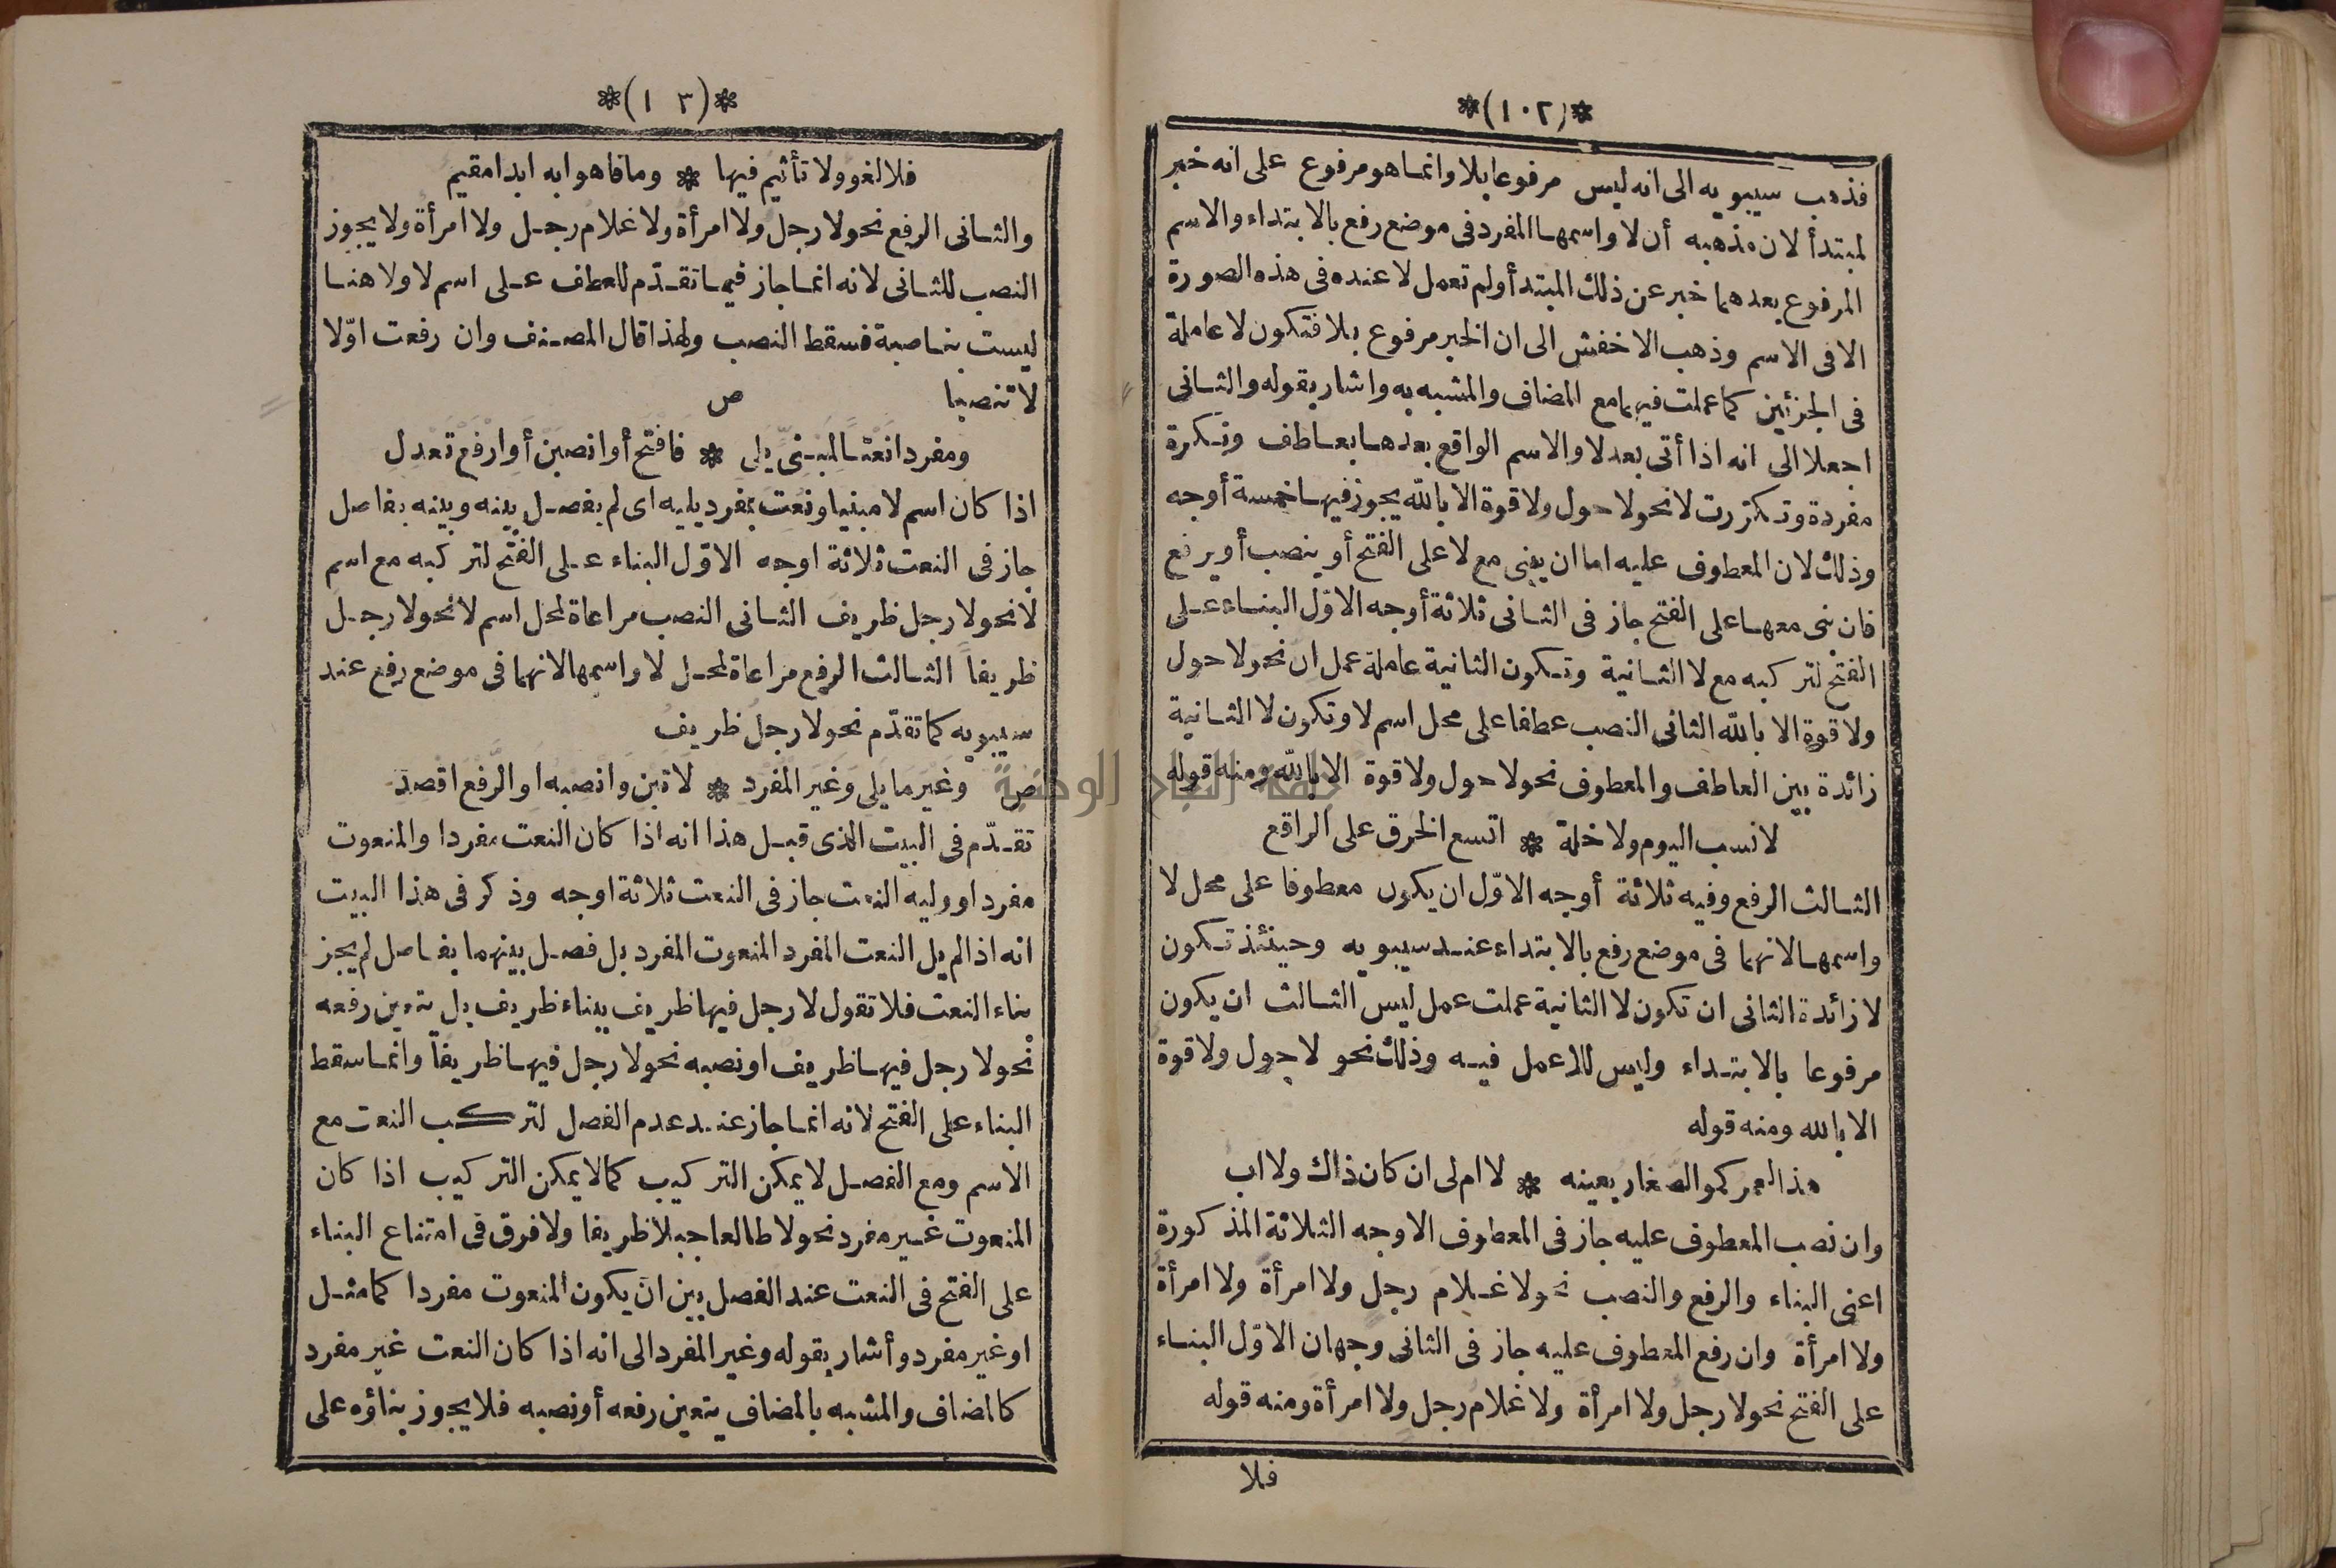 *(١٠٢)*
فذهب سيبويه الى انه ليس مرفوعا بلا وانما هو مرفوع على انه خبر
لمبتدأ لان مذهبه أن لا واسمها المفرد فى موضع رفع بالابتداء والاسم
المرفوع بعدهما خبر عن ذلك المبتدأ ولم تعمل لا عنده فى هذه الصورة
الا فى الاسم وذهب الاخفش الى ان الخبر مرفوع بلا فتكون لا عاملة
فى الجزئين كما عملت فيهما مع المضاف والمشبه به واشار بقوله والثانى
اجعلا الى انه اذا أتى بعد لا والاسم الواقع بعدها بعاطف ونكرة
مفردة وتكررت لا نحو لا حول ولا قوة الا بالله يجوز فيها خمسة أوجه
وذلك لان المعطوف عليه اما ان يبنى مع لا على الفتح أو ينصب أو يرفع
فان بنى معها على الفتح جاز فى الثانى ثلاثة أوجه الاوّل البناء على
الفتح لتركبه مع لا الثانية وتكون الثانية عاملة عمل ان نحو لا حول
ولا قوة الا بالله الثانى النصب عطفا على محل اسم لا وتكون لا الثانية
زائدة بين العاطف والمعطوف نحو لا حول ولا قوة الا بالله ومنه قوله
لا نسب اليوم ولا خلة * اتسع الخرق على الراقع
الثالث الرفع وفيه ثلاثة أوجه الاوّل ان يكون معطوفا على محل لا
واسمها لانهما فى موضع رفع بالابتداء عند سيبويه وحينئذ تكون
لا زائدة الثانى ان تكون لا الثانية عملت عمل ليس الثالث ان يكون
مرفوعا بالابتداء وليس للا عمل فيه وذلك نحو لا حول ولا قوة
الا بالله ومنه قوله
هذا لعمركمو الصغار بعينه * لا ام لى ان كان ذاك ولا اب
وان نصب المعطوف عليه جاز فى المعطوف الاوجه الثلاثة المذكورة
اعنى البناء والرفع والنصب نحو لا غلام رجل ولا امرأة ولا امرأة
ولا امرأة وان رفع المعطوف عليه جاز فى الثانى وجهان الاوّل البناء
على الفتح نحو لا رجل ولا امرأة ولا غلام رجل ولا امرأة ومنه قوله
فلا
*(١ ٣)*
فلا لغو ولا تأثيم فيها * وما فاهوا به ابدا مقيم
والثانى الرفع نحو لا رجل ولا امرأة ولا غلام رجل ولا امرأة ولا يجوز
النصب للثانى لانه انما جاز فيما تقدّم للعطف على اسم لا ولا هنا
ليست بناصبة فسقط النصب ولهذا قال المصنف وان رفعت اوّلا
لا تنصبا ص
ومفردا نعتا لمبنى يلى * فافتح أو انصبن أو ارفع تعدل
اذا كان اسم لا مبنيا ونعت بمفرد يليه اى لم يفصل بينه وبينه بفاصل
جاز فى النعت ثلاثة اوجه الاوّل البناء على الفتح لتركبه مع اسم
لا نحو لا رجل ظريف الثانى النصب مراعاة لمحل اسم لا نحو لا رجل
ظريفا الثالث الرفع مراعاة لمحل لا واسمها لانهما فى موضع رفع عند
سيبويه كما تقدّم نحو لا رجل ظريف
ص وغير ما يلى وغير المفرد * لا تبن وانصبه او الرفع اقصد
تقدّم فى البيت الذى قبل هذا انه اذا كان النعت مفردا والمنعوت
مفردا ووليه النعت جاز فى النعت ثلاثة اوجه وذكر فى هذا البيت
انه اذا لم يل النعت المفرد المنعوت المفرد بل فصل بينهما بفاصل لم يجز
بناء النعت فلا تقول لا رجل فيها ظريف ببناء ظريف بل يتعين رفعه
نحو لا رجل فيها ظريف او نصبه نحو لا رجل فيها ظريفا وانما سقط
البناء على الفتح لانه انما جاز عند عدم الفصل لتركب النعت مع
الاسم ومع الفصل لا يمكن التركيب كما لا يمكن التركيب اذا كان
المنعوت غير مفرد نحو لا طالعا جبلا ظريفا ولا فرق فى امتناع البناء
على الفتح فى النعت عند الفصل بين ان يكون المنعوت مفردا كما مثل
او غير مفرد وأشار بقوله وغير المفرد الى انه اذا كان النعت غير مفرد
كالمضاف والمشبه بالمضاف يتعين رفعه أو نصبه فلا يجوز بناؤه على